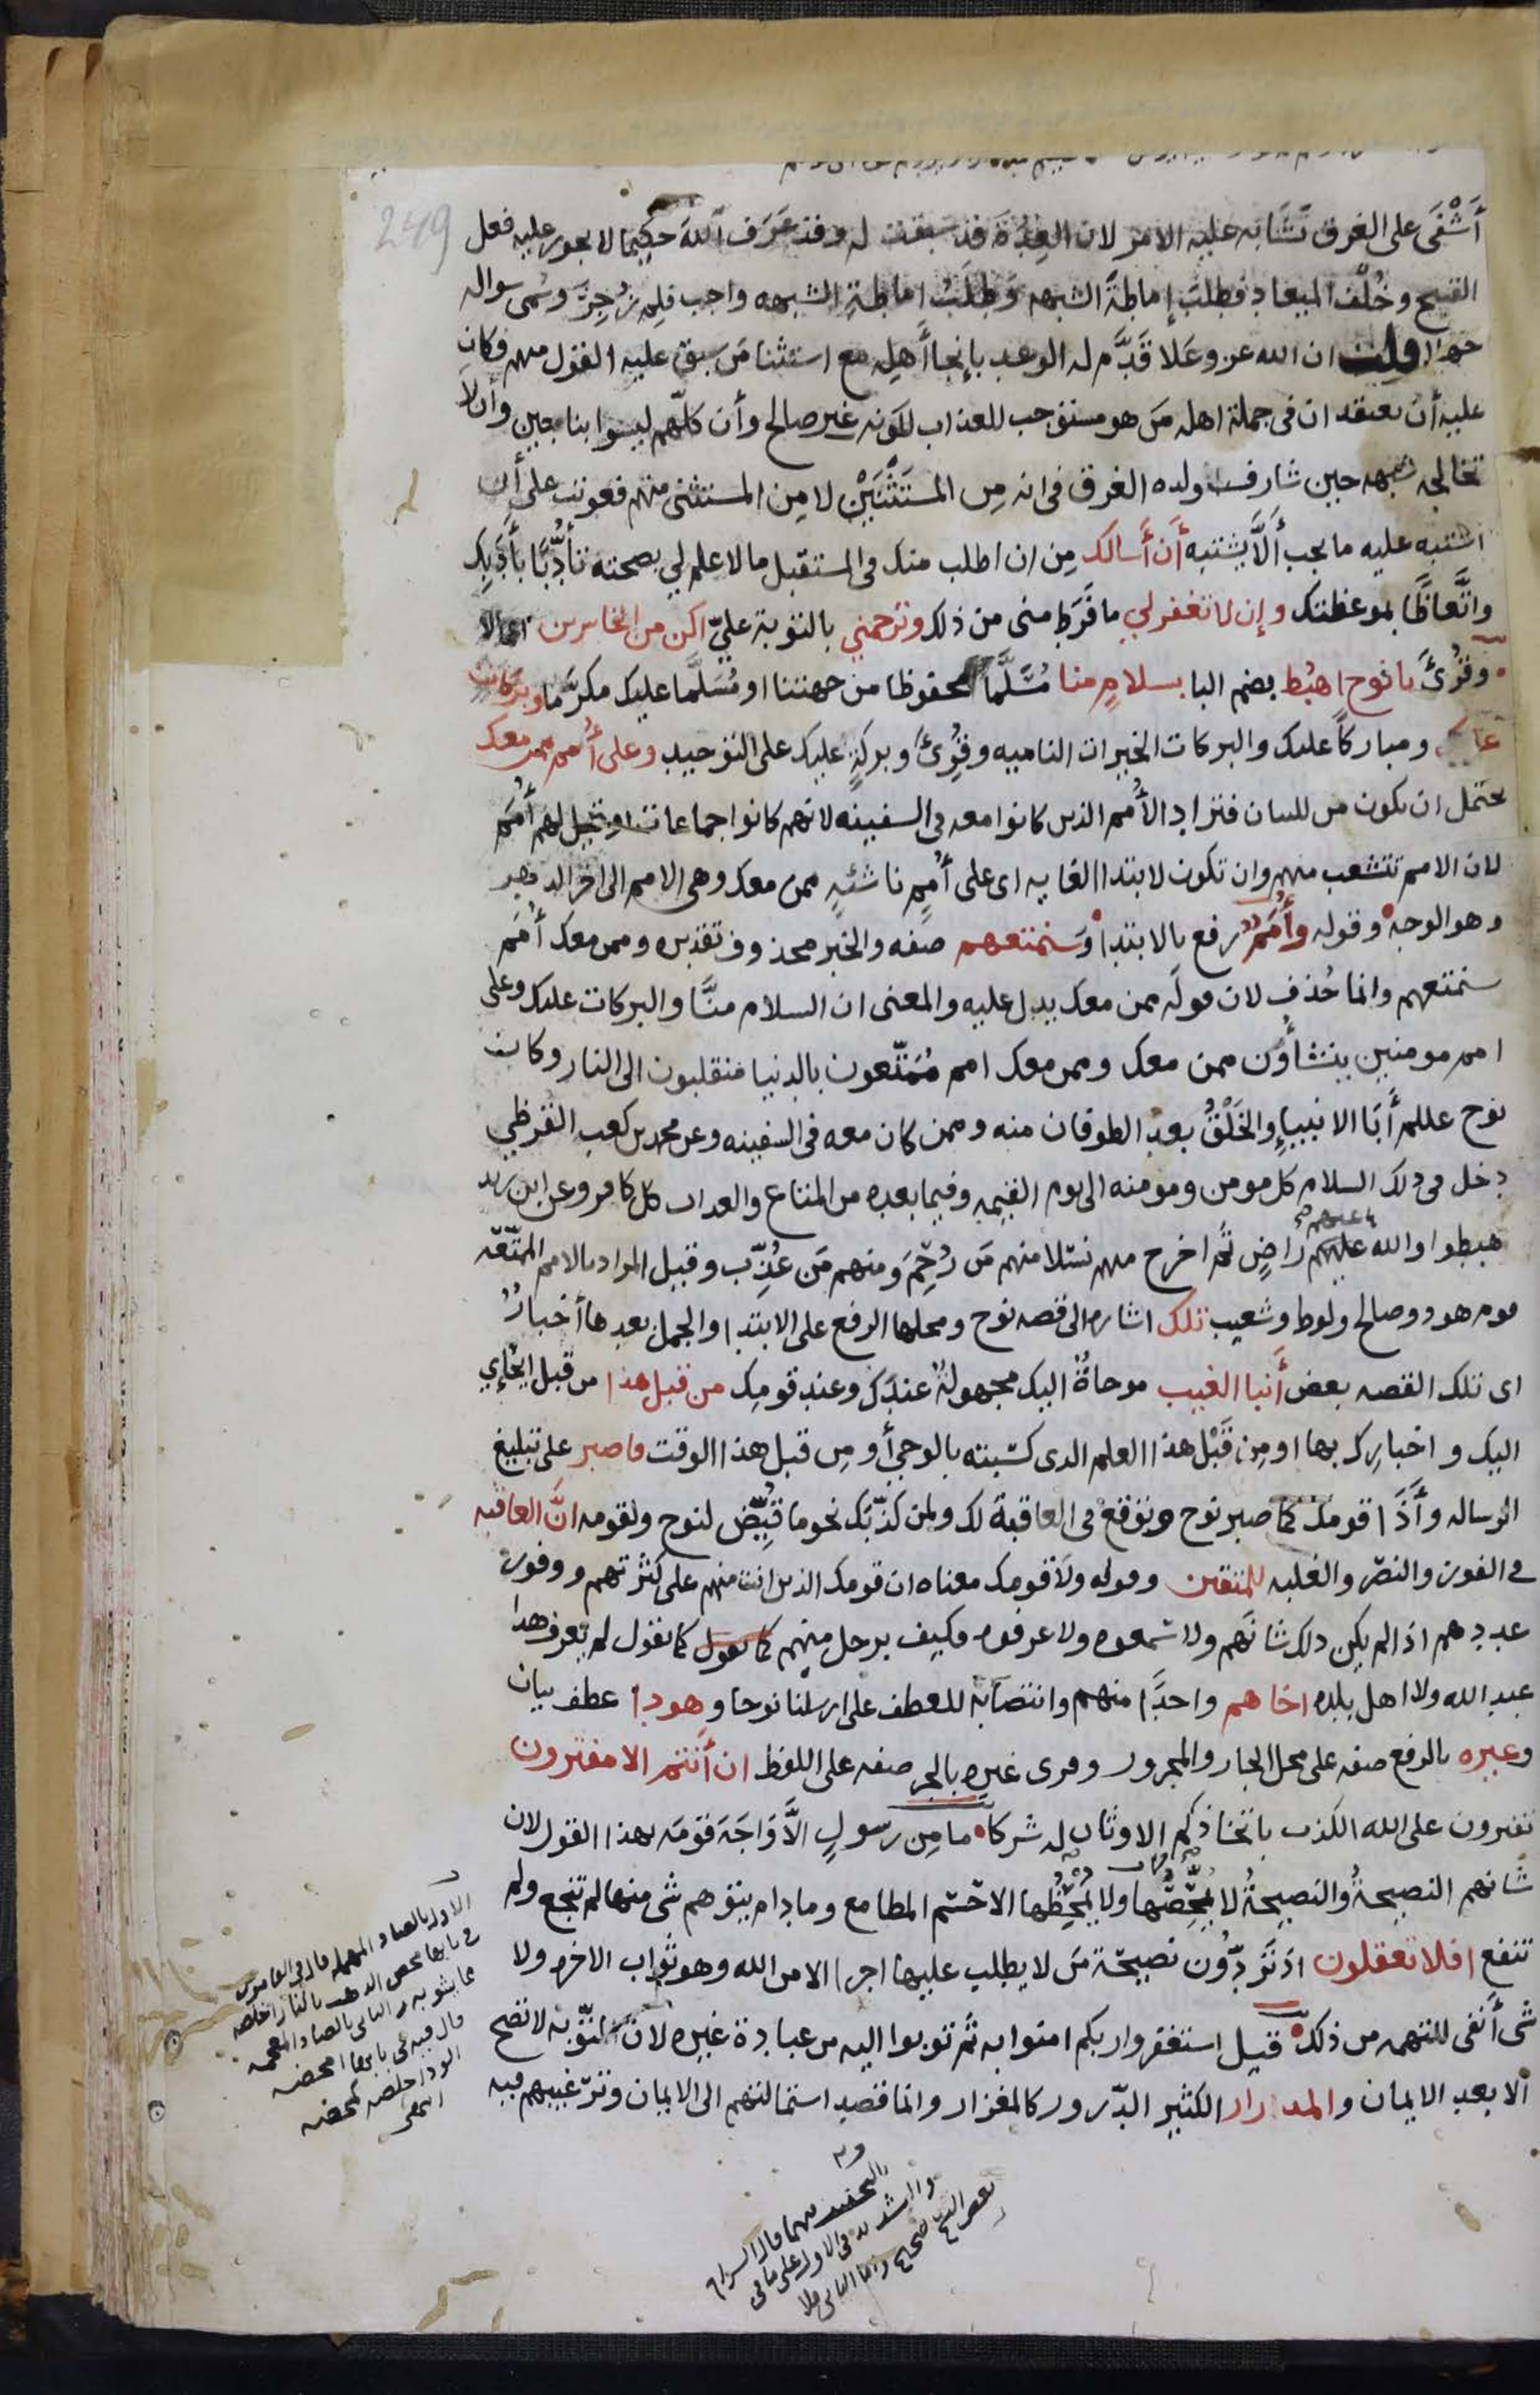 249
أَشْفَى على الغرق تَشَابَه عليه الامر لان العِدَةَ قد سبقت له وقد عَرَف اللهَ حكيما لا يجوز عليه فعل
القبيح وخُلْف الميعاد فطلَبَ إماطةَ الشبهه وطَلَبُ إماطةِ الشبهه واجب فلِمَ زُجِرَ وسُمى سواله
جهلا قلت ان الله عز وعلا قَدَّم له الوعد بإنجا أهلِه مع استثنا من سبق عليه القول منهم فكان
عليه أن يعتقد ان في جملة اهله مَن هو مستوجب للعذاب لكونه غير صالح وأن كلّهم ليسوا بناجين وأن لا
تخالجه شبهه حين شارف ولده الغرق في انه مِن المستَثْنَيْن لا مِن المستثنى منهم فعوتب على أن
اشتبه عليه ما يجب ألَّا يشتبه أن أسالك مِن ان اطلب منك في المستقبل ما لا علم لي بصحته تأدُّبًا بأدبِك
واتِّعاظًا بموعظتك وإن لا تغفر لي ما فَرَط مني من ذلك وترحمني بالتوبة عليّ اكن من الخاسرين اعمالا
وقُرئَ يا نوح اهبُط بضم البا بسلام منا مُسَلَّمًا محفوظا من جهتنا او مُسَلَّما عليك مكرَّما وبركات
عليك ومباركًا عليك والبركات الخيرات الناميه وقُرِئَ وبركةٍ عليك على التوحيد وعلى أُمم ممن معك
يحتمل ان يكون من للبيان فتراد الأُمم الذين كانوا معه في السفينه لانهم كانوا جماعات او قيل لهم أُمَم
لان الامم تتشعب منهم وان تكون لابتدا الغايه اى على أُممٍ ناشئهٍ ممن معك وهي الامم الى اخر الدهر
وهو الوجه وقوله وأُمَمٌ رفع بالابتدا وسنمتعهم صفه والخبر محذوف تقديره وممن معك أُمَم
سنمتعهم وانما حُذف لان قولَه ممن معك يدل عليه والمعنى ان السلام منَّا والبركات عليك وعلى
امم مومنين ينشأون ممن معك وممن معك امم مُمَتَّعون بالدنيا منقلبون الى النار وكان
نوح عللم أبَا الانبياءِ والخَلْقُ بعد الطوفان منه وممن كان معه في السفينه وعن محمد بن كعب القرظي
دخل في ذلك السلام كل مومن ومومنه الى يوم القيمه وفيما بعده من المتاع والعذاب كل كافر وعن ابن زيد
عنهم
هبطوا والله عليهم راضٍ ثم اخرج منهم نسلا منهم مَن رُحِمَ ومنهم مَن عُذِّب وقيل المراد بالامم الممتّعه
قوم هود وصالح ولوط وشعيب تلك اشاره الى قصه نوح ومحلها الرفع على الابتدا والجمل بعدها أخبارٌ
اى تلك القصه بعض أنبا الغيب موحاةٌ اليك مجهولةٌ عندَك وعند قومِك من قبل هذا من قبل ايحاءِي
اليك واخبارِك بها او مِن قَبْل هذا العلم الذى كسبته بالوحي أو مِن قبل هذا الوقت فاصبر على تبليغ
الرساله وأذَا قومك كما صبر نوح وتوقع في العاقبة لك ولمن كذّبك نحو ما قُيِّض لنوح ولقومه انَّ العاقبه
في الفوز والنصر والغلبه للمتقين وقوله ولا قومك معناه ان قومك الذين انت منهم على كثرتهم ووفور
عددهم اذا لم يكن ذلك شانَهم ولا سمعوه ولا عرفوه فكيف برجل منهم كما تقول كما تقول لم يعرف هذا
عبد الله ولا اهل بلده اخاهم واحدًا منهم وانتصابه للعطف على ارسلنا نوحا وهودا عطف بيان
وغيره بالرفع صفه على محل الجار والمجرور وقرى غيرِه بالجر صفه على اللفظ ان أنتم الا مفترون
تفترون على الله الكذب باتخاذكم الاوثان له شركا ما مِن رسولٍ الَّا وَاجَهَ قومَه بهذا القول لان
شانهم النصيحةُ والنصيحةُ لا يُمَحِّصُها ولا يُمَحِّضُها الا حَسْم المطامع وما دام يتوهم شى منها لم تنجع ولم
تنفع افلا تعقلون اذ تَرُدّون نصيحة مَن لا يطلب عليها اجرا الا من الله وهو ثواب الاخره ولا
شى أنفى للتهمه من ذلك قيل استغفروا ربكم امنوا به ثم توبوا اليه من عبادة غيره لان التوبه لا تصح
الا بعد الايمان والمدرار الكثير الدّرور كالمغزار وانما قصد استمالتهم الى الايمان وترغيبهم فيه
الاول بالصاد المهمله قال في القاموس
محص الذهب بالنار اخلصه
مما يشوبه والثاني بالضاد المعجمه
الود اخلصه كمحضه